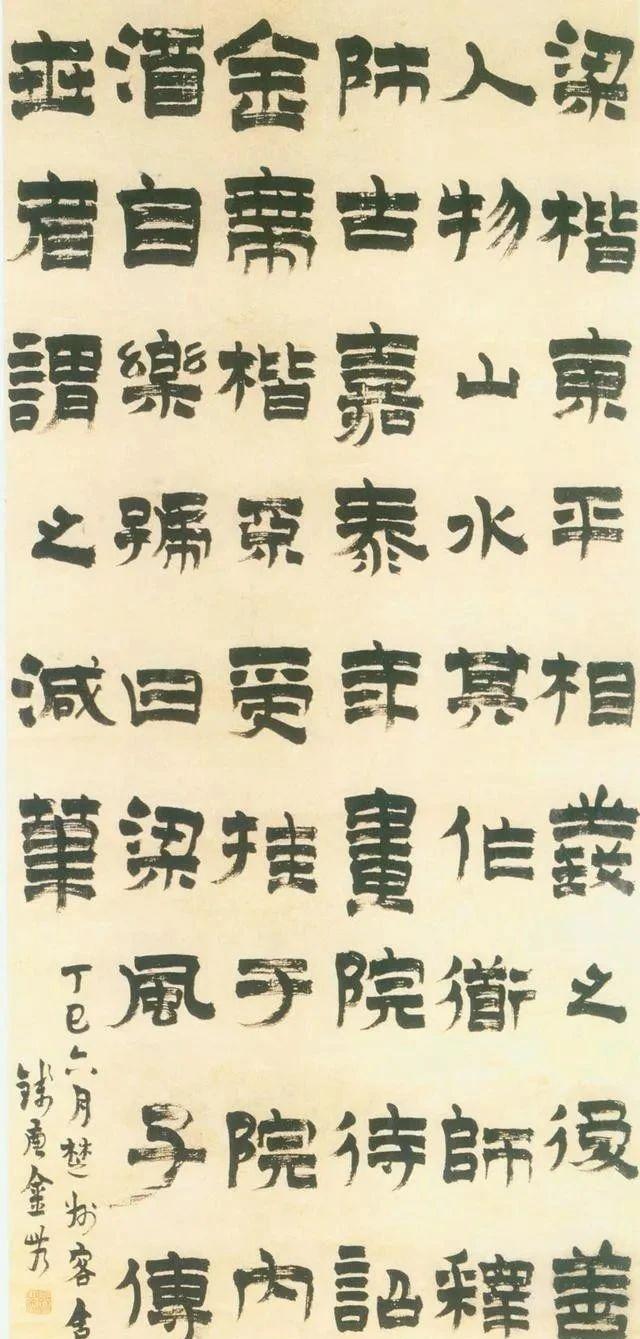 梁楷東平相之後善
人物山水其作衜師釋
師古嘉泰年畫院待詔
金帶楷受挂于院内
酒自樂號曰梁風子傳
者謂之減筆
丁巳六月楚州客舍
錢唐金農